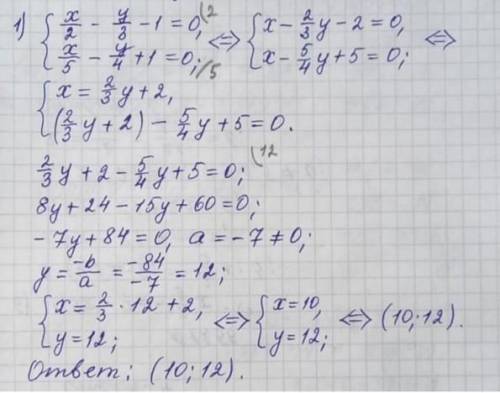 1) { x/2 - y/3 - 1 = 0, (2 <=> { x - 2/3 y - 2 = 0, <=>
x/5 - y/4 + 1 = 0; /5 x - 5/4 y + 5 = 0;
{ x = 2/3 y + 2,
(2/3 y + 2) - 5/4 y + 5 = 0.
2/3 y + 2 - 5/4 y + 5 = 0; (12
8y + 24 - 15y + 60 = 0;
-7y + 84 = 0, a = -7 ≠ 0;
y = -b/a = -84/-7 = 12;
{ x = 2/3 · 12 + 2, <=> { x = 10, <=> (10; 12).
y = 12; y = 12;
Ответ: (10; 12).